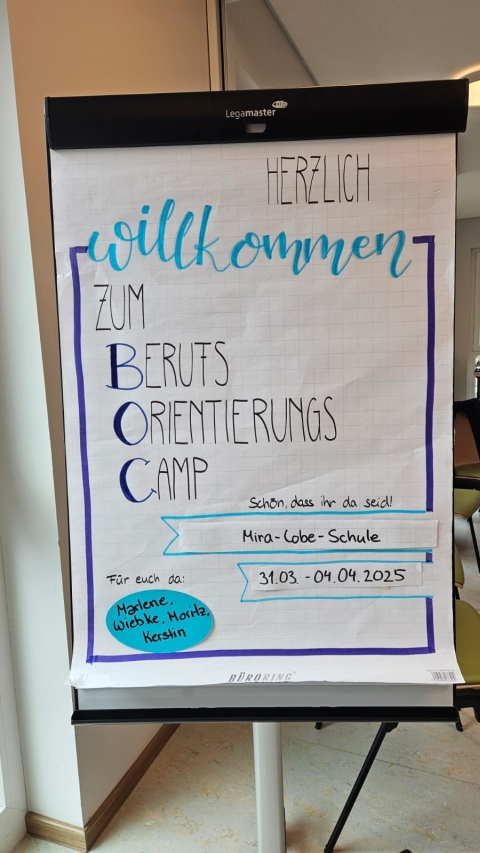 Legamaster
HERZLICH
willkommen
ZUM
BERUFS
ORIENTIERUNGS
CAMP
Schön, dass ihr da seid!
Mira-Lobe-Schule
31.03. - 04.04.2025
Für euch da:
Marlene,
Wiebke, Moritz,
Kerstin
BÜRORING